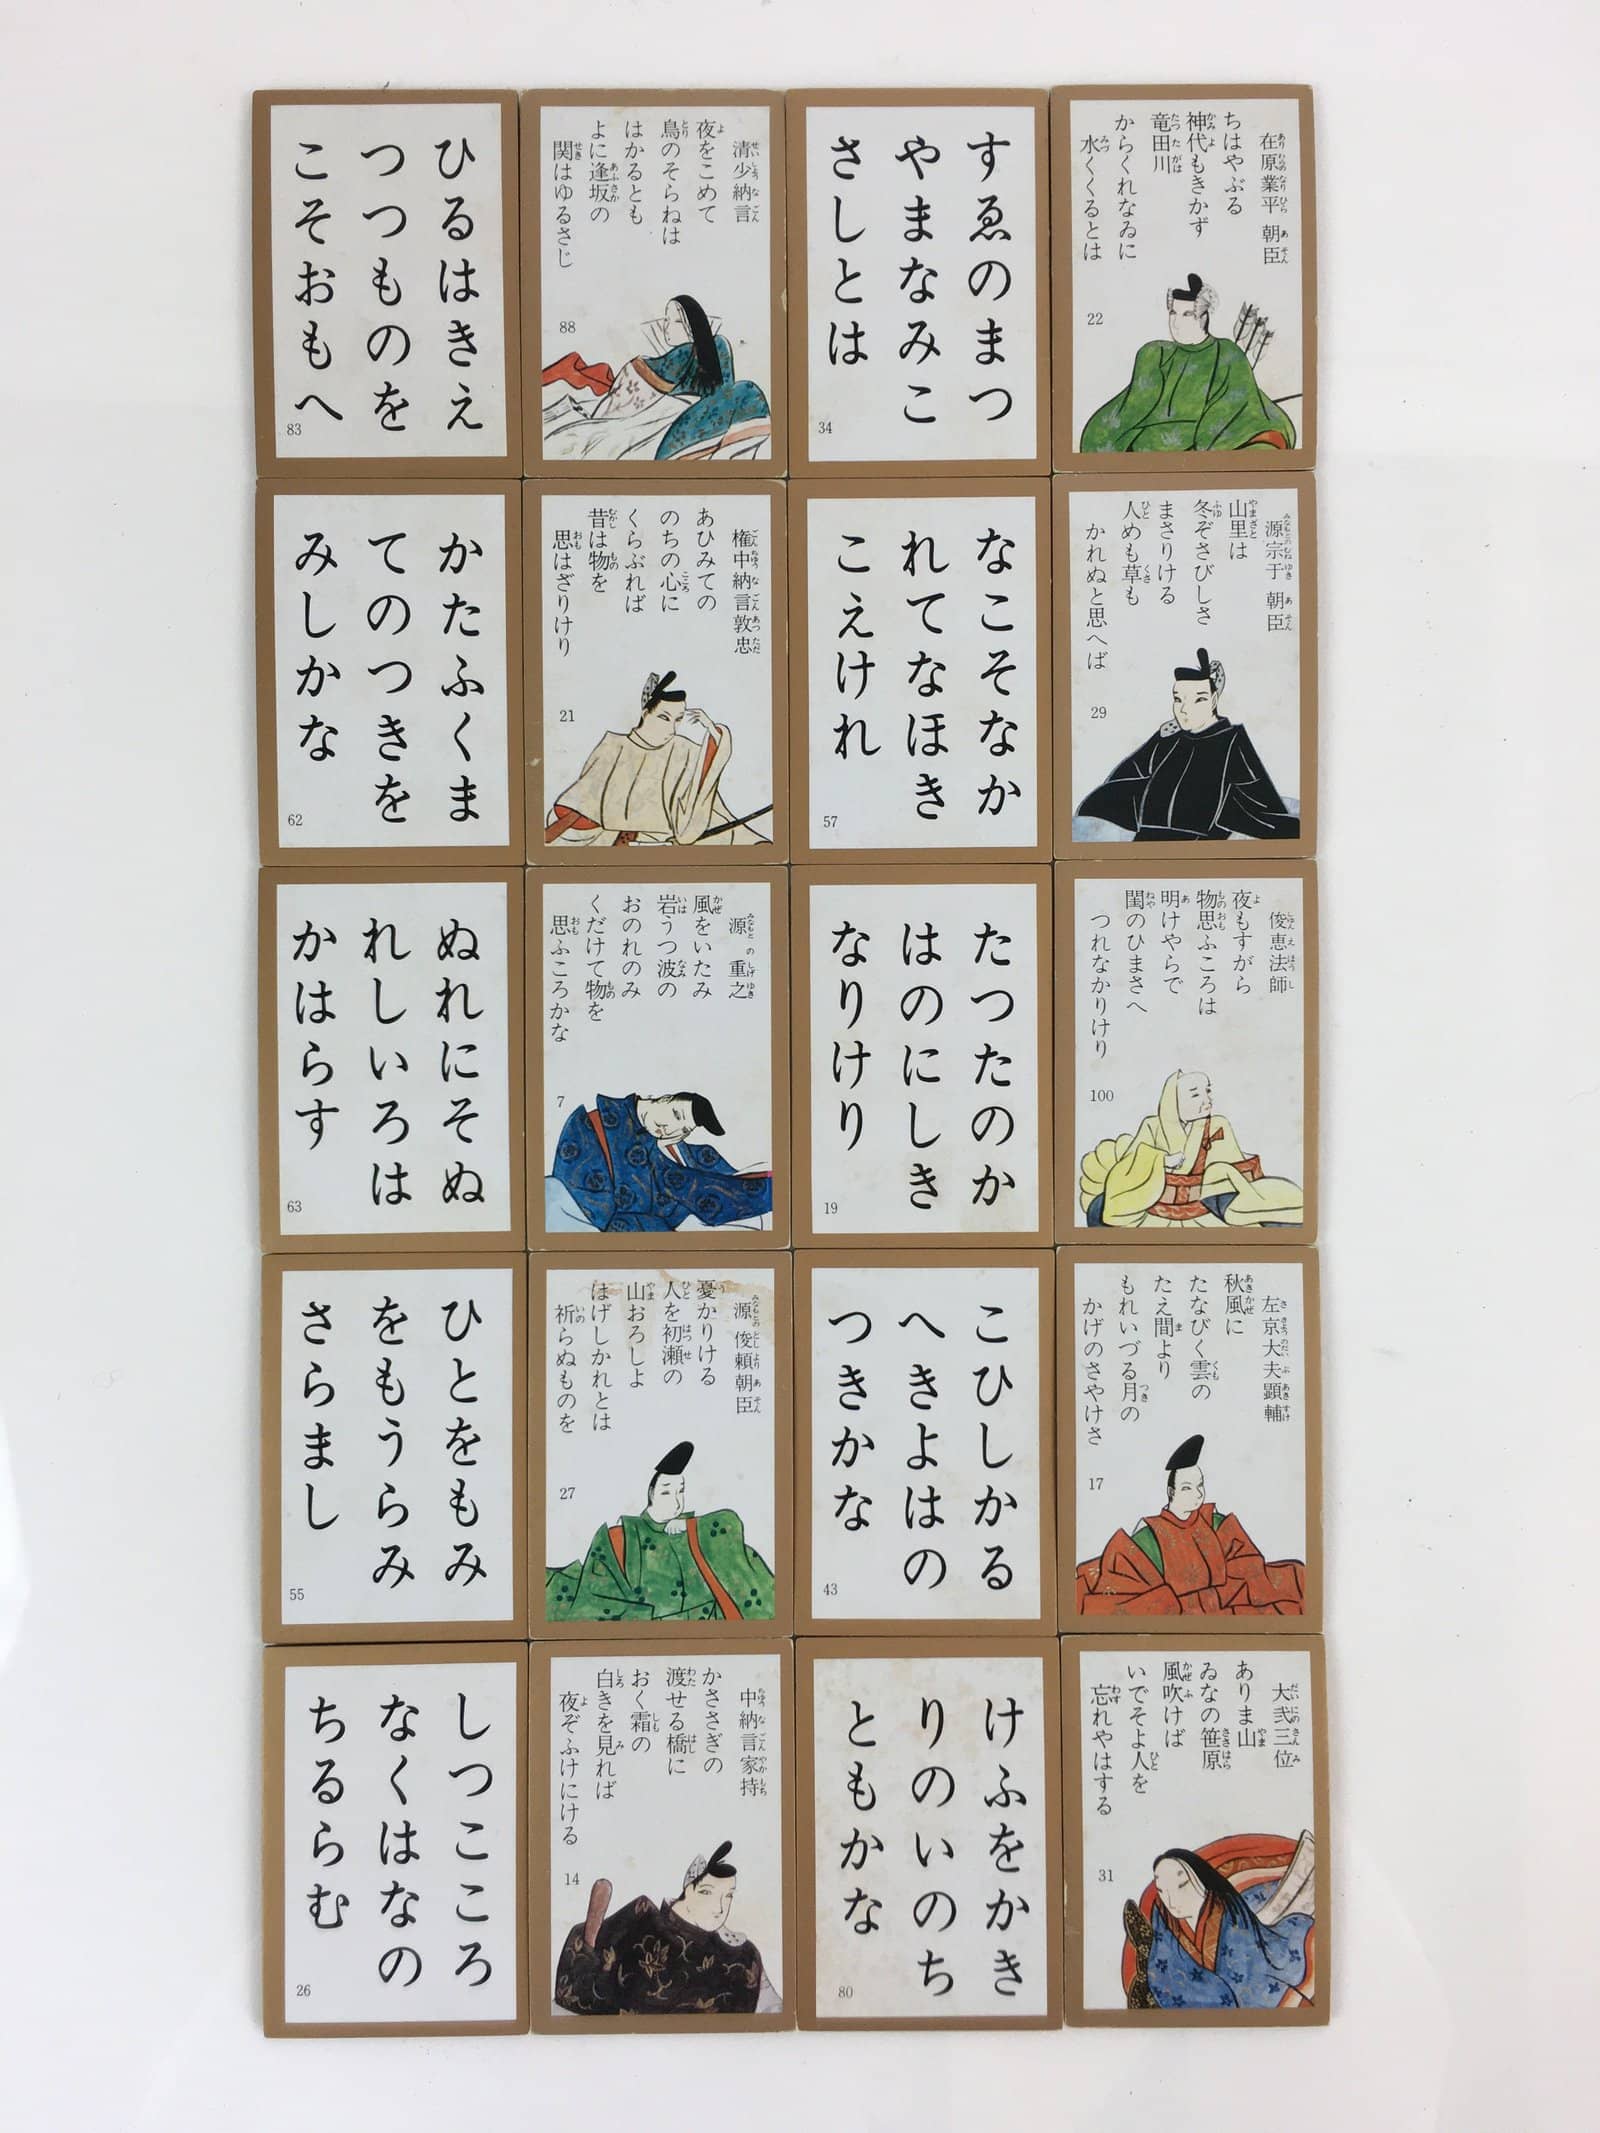 在原業平 朝臣
ちはやぶる
神代もきかず
竜田川
からくれなゐに
水くくるとは
22
すゑのまつ
やまなみこ
さしとは
34
清少納言
夜をこめて
鳥のそらねは
はかるとも
よに逢坂の
関はゆるさじ
88
ひるはきえ
つつものを
こそおもへ
83
源宗于 朝臣
山里は
冬ぞさびしさ
まさりける
人めも草も
かれぬと思へば
29
なこそなか
れてなほき
こえけれ
57
権中納言敦忠
あひみての
のちの心に
くらぶれば
昔は物を
思はざりけり
21
かたふくま
てのつきを
みしかな
62
俊恵法師
夜もすがら
物思ふころは
明けやらで
閨のひまさへ
つれなかりけり
100
たつたのか
はのにしき
なりけり
19
源重之
風をいたみ
岩うつ波の
おのれのみ
くだけて物を
思ふころかな
7
ぬれにそぬ
れしいろは
かはらす
63
左京大夫顕輔
秋風に
たなびく雲の
たえ間より
もれいづる月の
かげのさやけさ
17
こひしかる
へきよはの
つきかな
43
源俊頼朝臣
憂かりける
人を初瀬の
山おろしよ
はげしかれとは
祈らぬものを
27
ひとをもみ
をもうらみ
さらまし
55
大弐三位
ありま山
ゐなの笹原
風吹けば
いでそよ人を
忘れやはする
31
けふをかき
りのいのち
ともかな
80
中納言家持
かささぎの
渡せる橋に
おく霜の
白きを見れば
夜ぞふけにける
14
しつこころ
なくはなの
ちるらむ
26